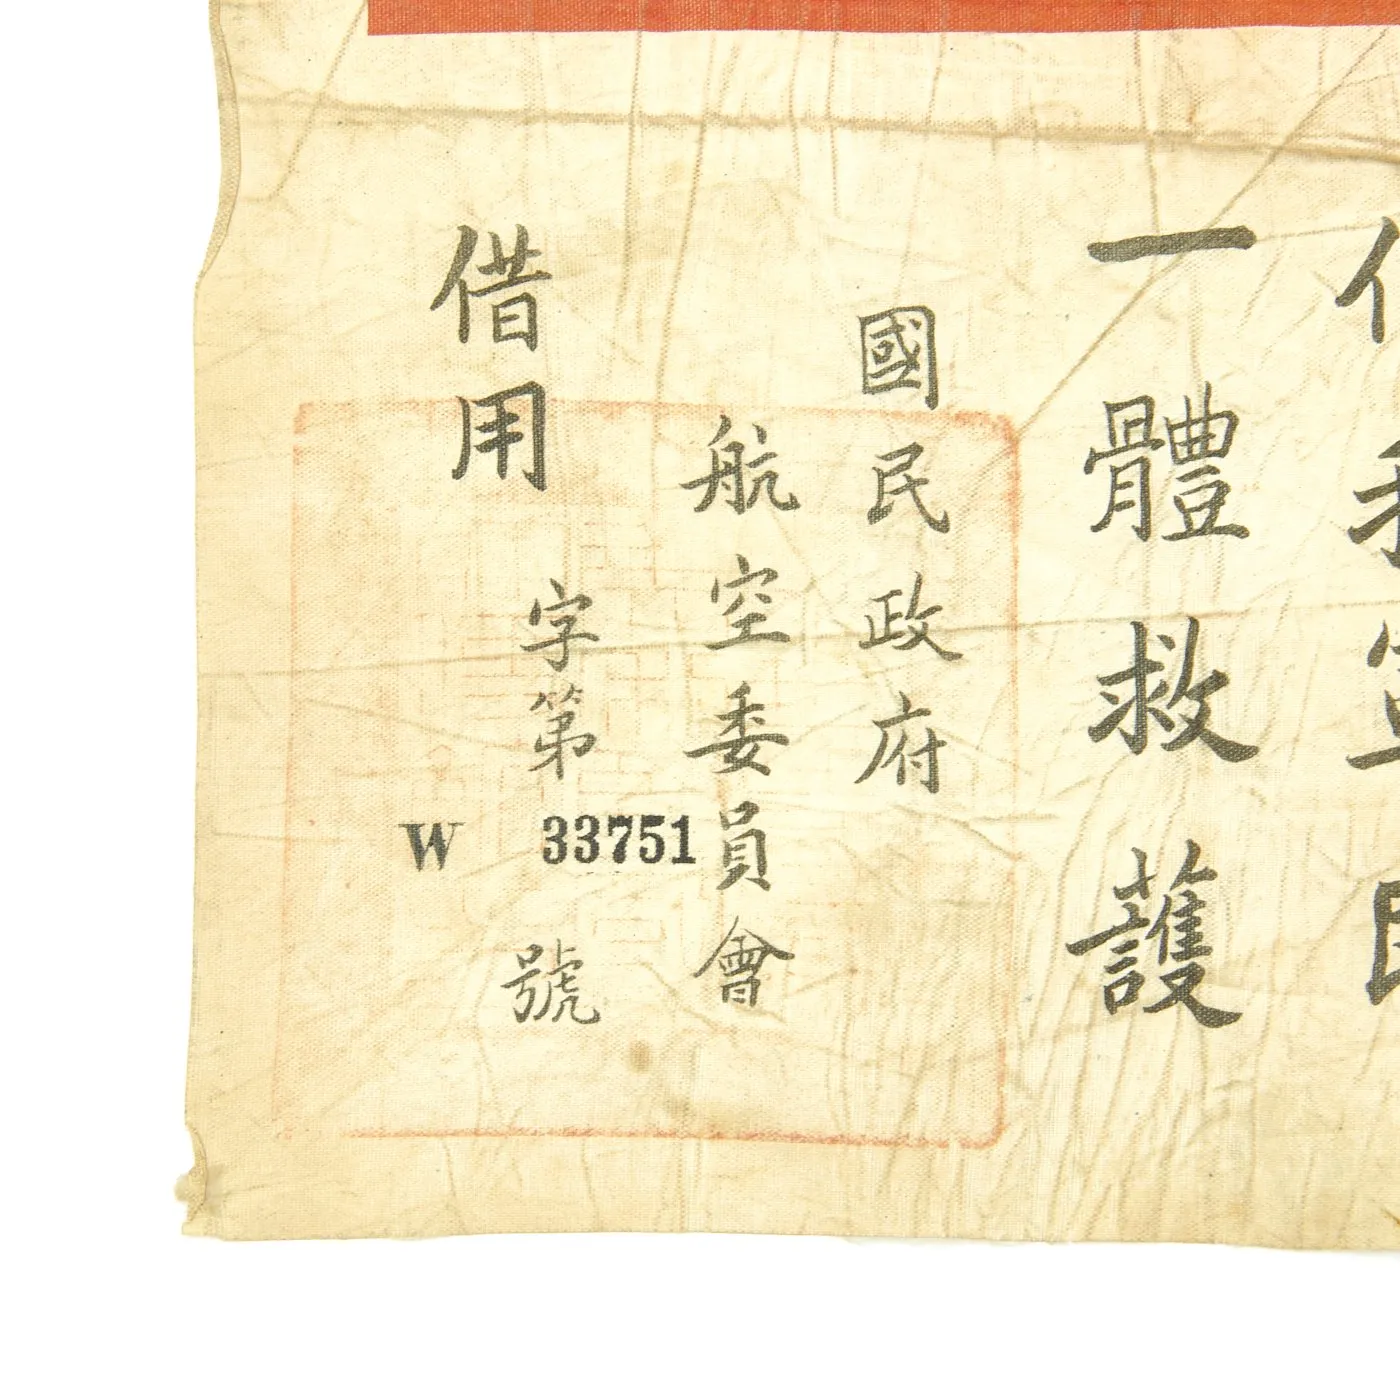 一體救護
國民政府
航空委員會
借用
字第
W 33751
號